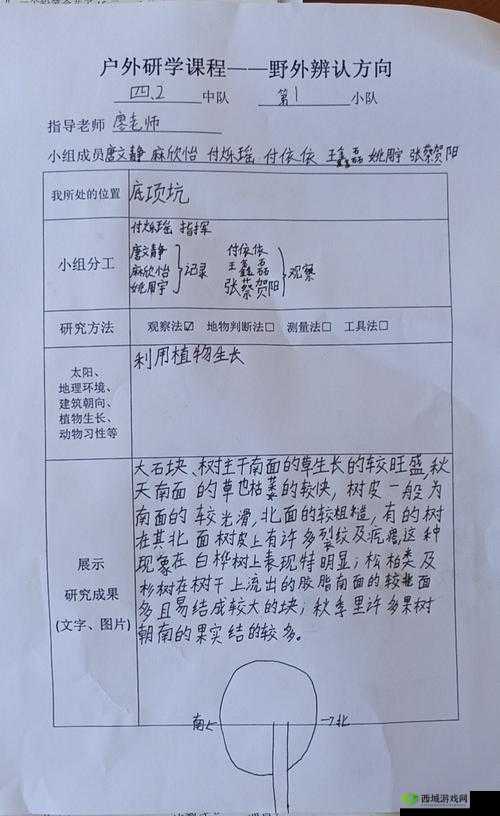 户外研学课程——野外辨认方向
四.2 中队 第1 小队
指导老师 廖老师
小组成员 唐文静 麻欣怡 付烁瑶 付依依 王鑫磊 姚周宇 张蔡贺阳
我所处的位置 底项坑
小组分工
付烁瑶 指挥
唐文静
麻欣怡
姚周宇
记录
付依依
王鑫磊
张蔡贺阳
观察
研究方法 观察法☑ 地物判断法□ 测量法□ 工具法□
太阳、
地理环境、
建筑朝向、
植物生长、
动物习性等
利用植物生长
展示
研究成果
(文字、图片)
大石块、树主干南面的草生长的较旺盛,秋
天南面的草也枯萎的较快,树皮一般为
南面的较光滑,北面的较粗糙,有的树
在其北面树皮上有许多裂纹及疙瘩这种
现象在白桦树上表现特明显;松柏类及
杉树在树干上流出的胶脂南面的较北面
多且易结成较大的块;秋季里许多果树
朝南的果实结的较多。
南← →北
西域游戏网